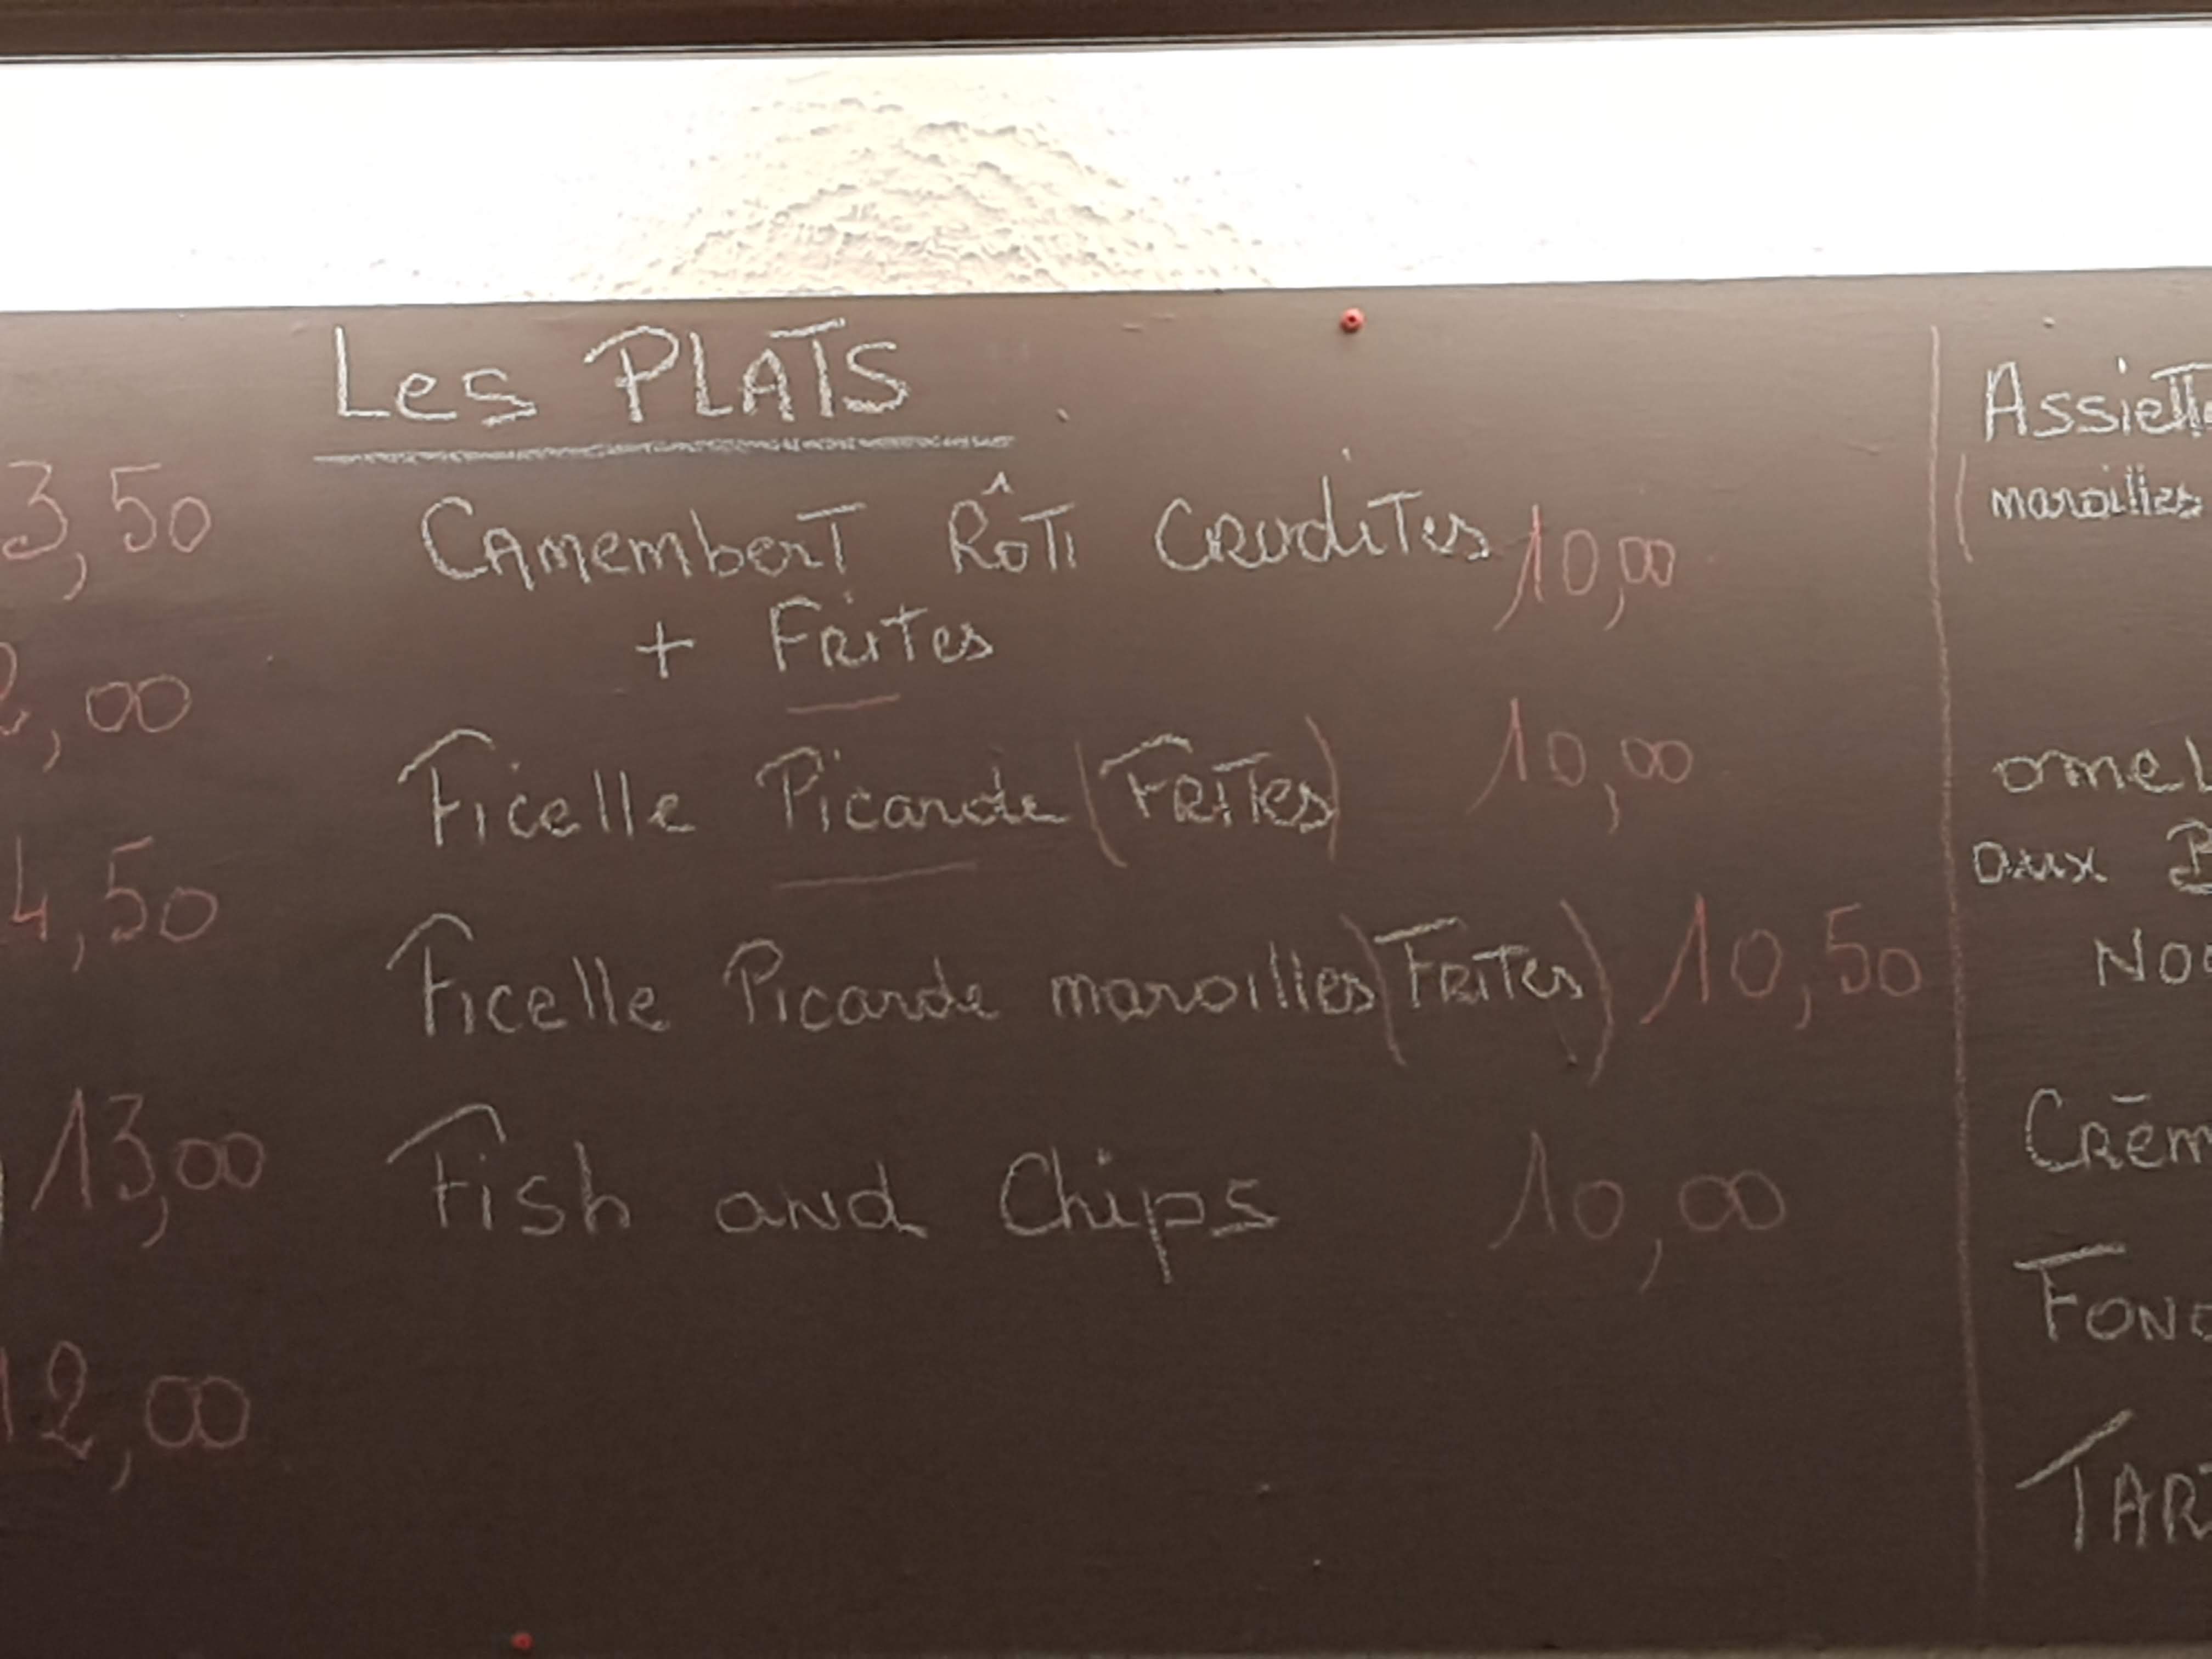 3,50
2,00
4,50
13,00
12,00
Les PLATS
CAmembert RôTi CRudiTes 10,00
+ FRiTes
Ficelle Picarde (FRiTes) 10,00
Ficelle Picarde maroilles (FRiTes) 10,50
Fish and Chips 10,00
Assiette
(maroilles
omel
aux B
NO
CRêm
FON
TART